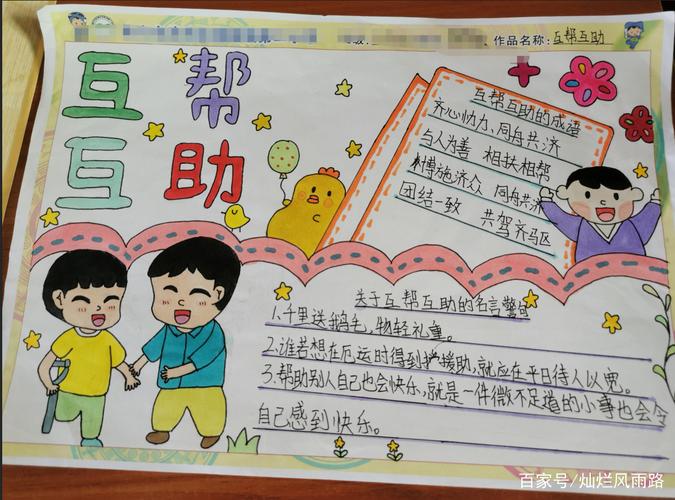 作品名称:互帮互助
互帮
互助
互帮互助的成语
齐心协力,同舟共济
与人为善 相扶相帮
博施济众 同舟共济
团结一致 共驾齐马区
关于互帮互助的名言警句
1.千里送鹅毛,物轻礼重。
2.谁若想在厄运时得到援助,就应在平日待人以宽。
3.帮助别人自己也会快乐,就是一件微不足道的小事也会令
自己感到快乐。
百家号/灿烂风雨路